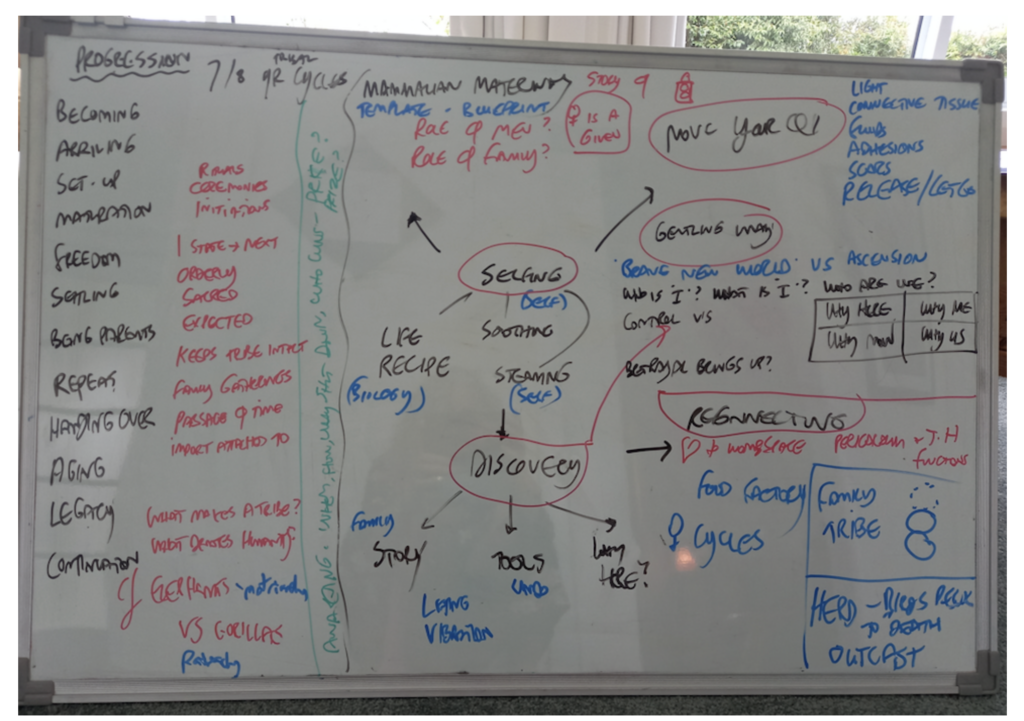 PROGRESSION
7/8 YR CYCLES
TRIBAL
BECOMING
ARRIVING
SET-UP
MATURATION
FREEDOM
SETTLING
BEING PARENTS
REPEAT
HANDING OVER
AGING
LEGACY
CONTINUATION
RITUALS
CEREMONIES
INITIATIONS
1 STATE → NEXT
ORDERLY
SACRED
EXPECTED
KEEPS TRIBE INTACT
FAMILY GATHERINGS
PASSAGE OF TIME
IMPORT ATTACHED TO
WHAT MAKES A TRIBE?
WHAT DENOTES HUMANITY
ELEPHANTS - matriarchy
VS GORILLAS
MAMMALIAN MATERNITY
TEMPLATE - BLUEPRINT
ROLE OF MEN?
ROLE OF FAMILY?
STORY OF
♀ IS A
GIVEN
NOVC YEAR Q1
LIGHT
CONNECTIVE TISSUE
FLUIDS
ADHESIONS
SCARS
RELEASE/LET GO
GENTLING WAY
'BRAVE NEW WORLD' VS ASCENSION
WHO IS 'I'? WHAT IS 'I'? WHO ARE WE?
CONTROL VS
WHY HERE WHY ME
WHY NOW WHY US
BETRAYAL BRINGS UP?
SELFING
(SELF)
LIFE
RECIPE
(BIOLOGY)
SOOTHING
STEAMING
(SELF)
DISCOVERY
FAMILY
STORY
TOOLS
WHY
HERE?
LIVING
VIBRATION
RECONNECTING
♡ + WOMBSPACE
PERICARDIUM + T.H
functions
FOOD FACTORY
♀ CYCLES
FAMILY
TRIBE
HERD - BIRDS
TO DEATH
OUTCAST